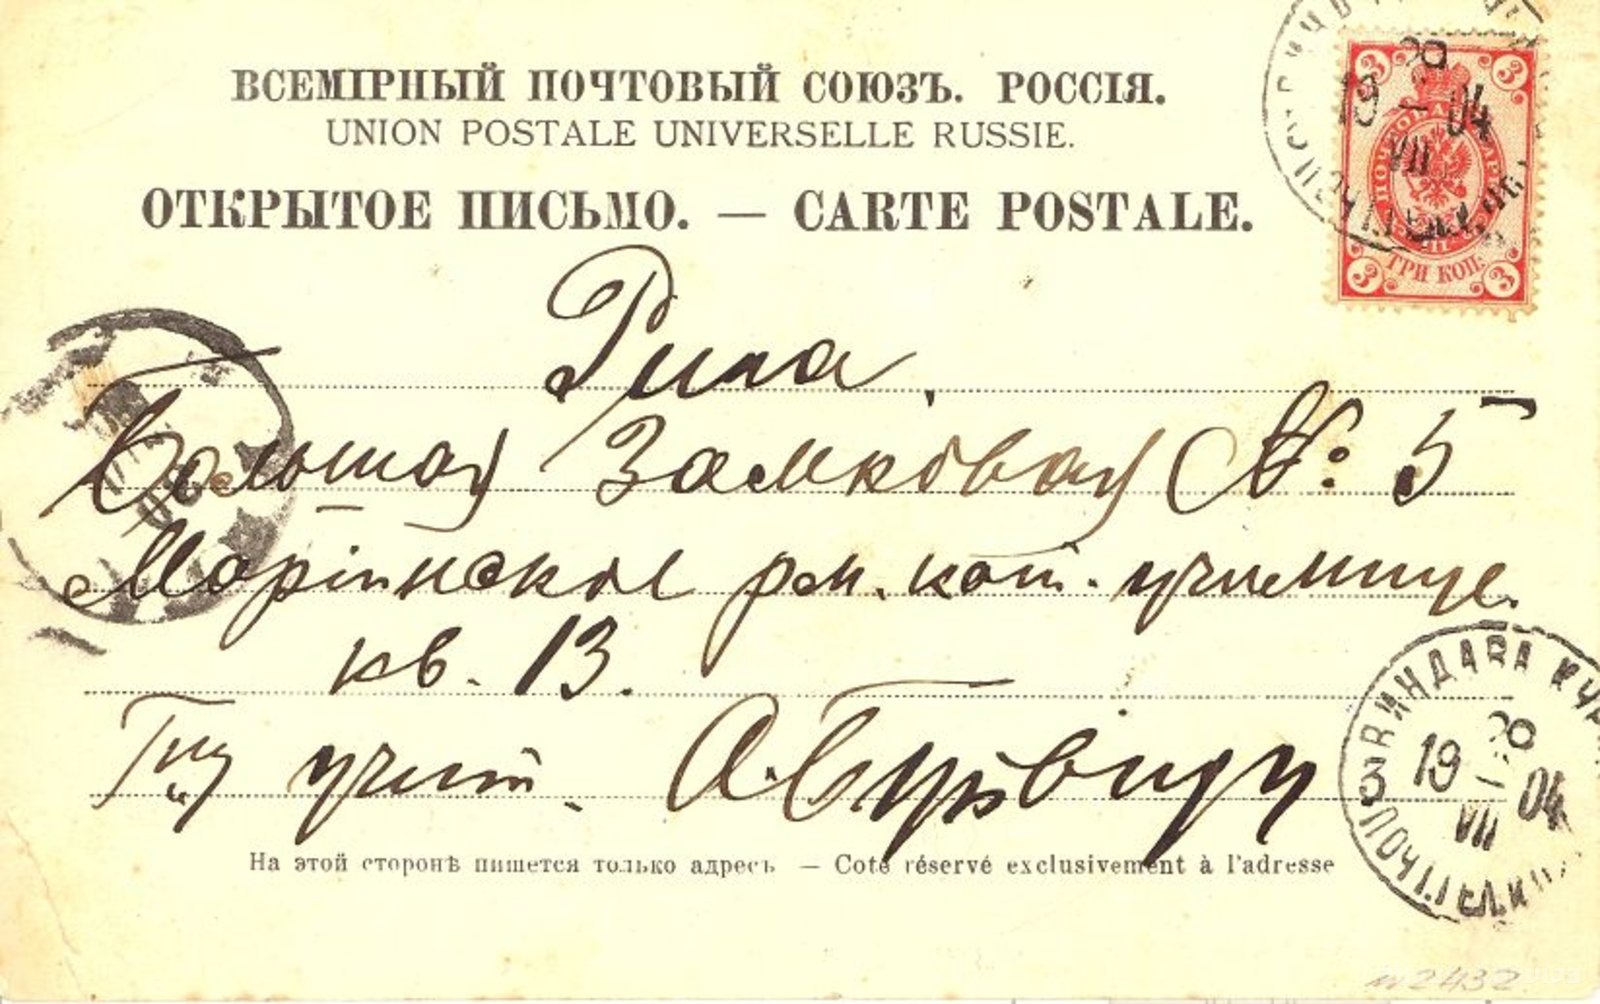 ВСЕМІРНЫЙ ПОЧТОВЫЙ СОЮЗЪ. РОССІЯ.
UNION POSTALE UNIVERSELLE RUSSIE.
ОТКРЫТОЕ ПИСЬМО. — CARTE POSTALE.
19 20 04
VII
3 3
ТРИ КОП.
3 3
Рига,
Большая Замковая №: 5
Маріинское рим. кат. училище.
кв. 13.
учит.
ВИНДАВА
19 20 04
VII
На этой сторонѣ пишется только адресъ — Coté réservé exclusivement à l'adresse
2432